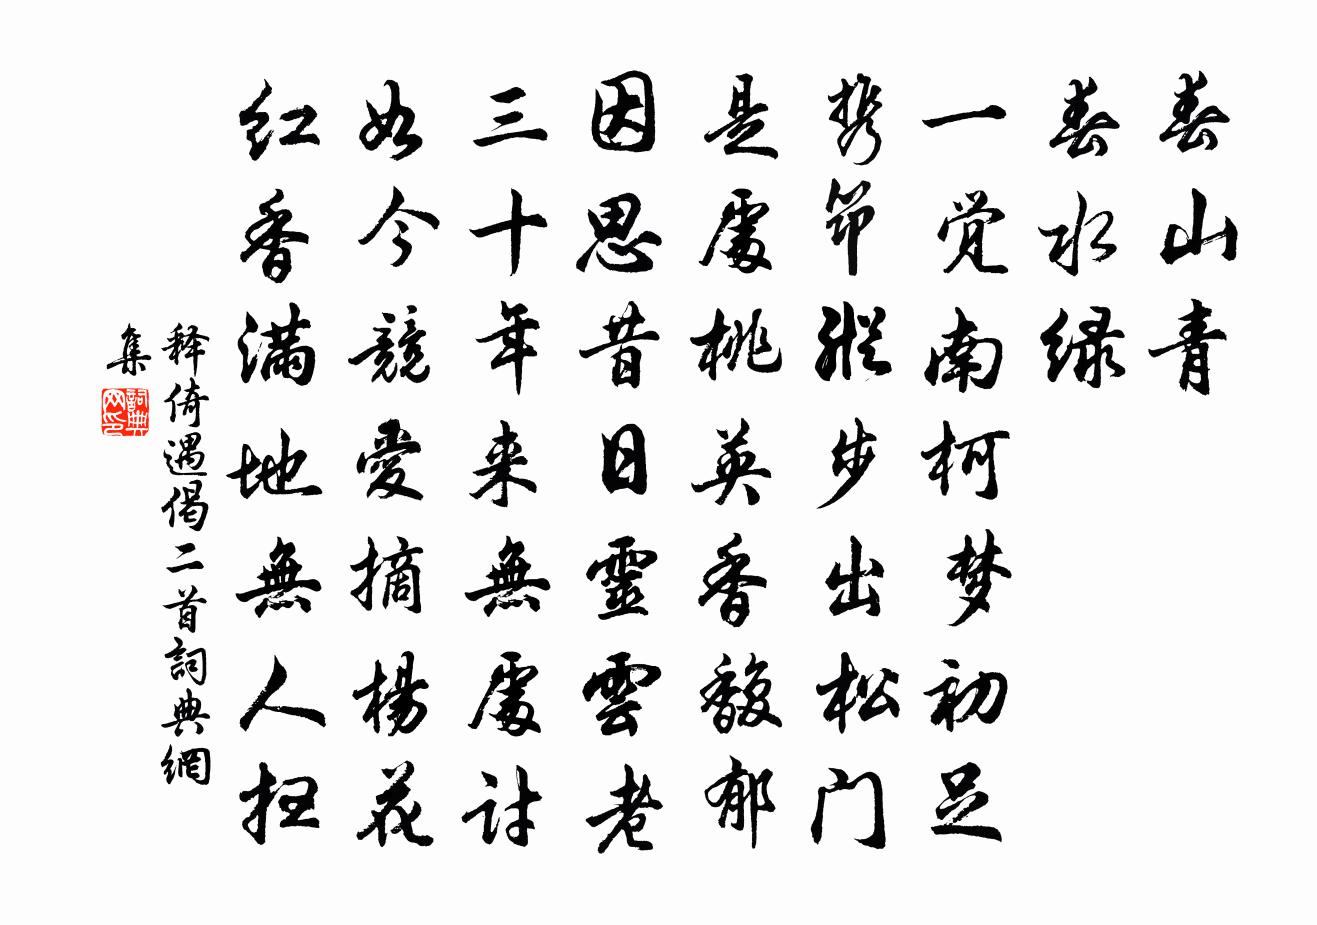 春山青
春水绿
一觉南柯梦初足
携筇縱步出松门
是處桃英香馥郁
因思昔日靈雲老
三十年来無處讨
如今競愛摘楊花
红香满地無人扫
释倚遇偈二首詞典網
集
詞典网印